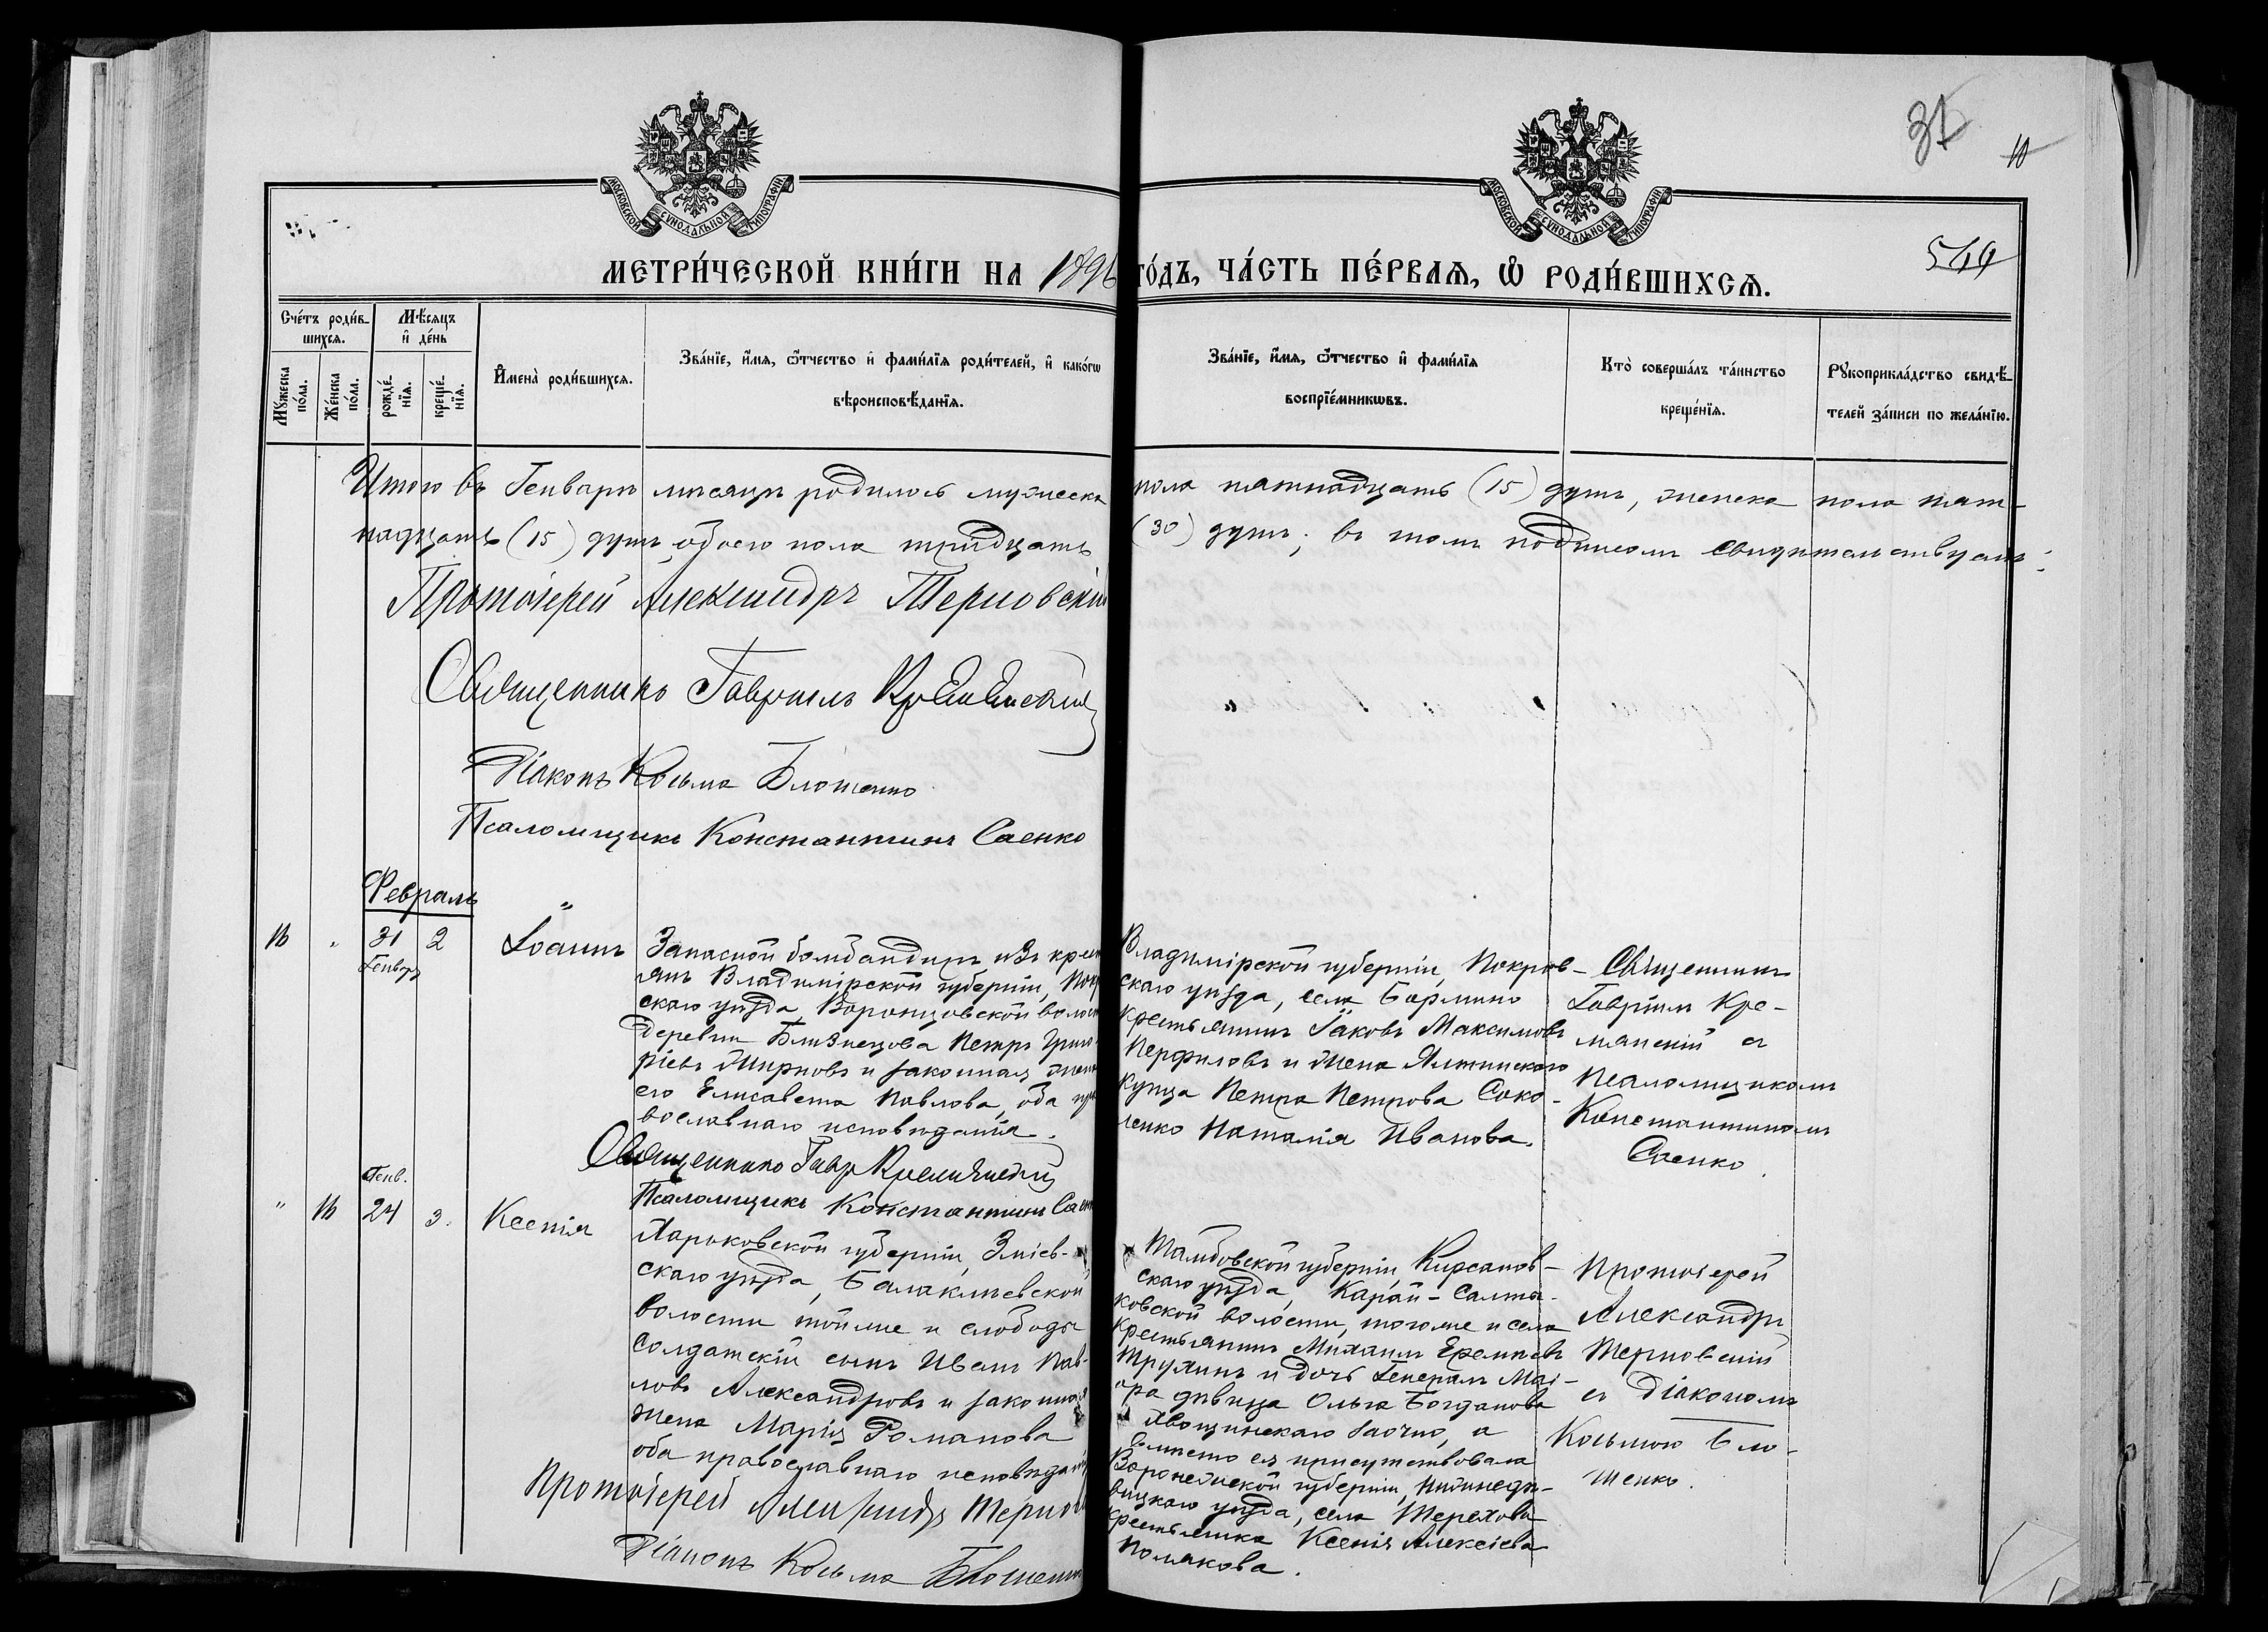 31
10
МОСКОВСКОЙ СѴНОДАЛЬНОЙ ТИПОГРАФІИ
МОСКОВСКОЙ СѴНОДАЛЬНОЙ ТИПОГРАФІИ
МЕТРИ́ЧЕСКОЙ КНИ́ГИ НА 1896 ГО́ДЪ, ЧА́СТЬ ПЕ́РВАЯ, Ѡ РОДИ́ВШИХСЯ.
569
Сче́тъ роди́в-
шихся.
Мѣсяцъ
и де́нь
Му́жеска
по́ла.
Же́нска
по́ла.
рожде́-
нія.
креще́-
нія.
Имена̀ роди́вшихся.
Зва́нїе, и́мя, ѻ́тчество и фами́лїя роди́телей, и како́гѡ
вѣроисповѣ́данїя.
Зва́нїе, и́мя, ѻ́тчество и фами́лїя
воспрїе́мникѡвъ.
Кто̀ соверша́лъ та́инство
креще́нїя.
Рукоприкла́дство свидѣ́-
телей за́писи по жела́нїю.
Итого въ Генварѣ мѣсяцѣ родилось мужеска пола пятнадцать (15) душъ, женска пола пят-
надцать (15) душъ, обоего пола тридцать (30) душъ; въ томъ подписомъ свидѣтельствуемъ:
Протоіерей Александръ Терновскій
Священникъ Гавріилъ Кремянскій
Діаконъ Косьма Блошенко
Псаломщикъ Константинъ Саенко
Февраль
16 " 31 2
Генвр
Іоаннъ
Запасной бомбандиръ изъ крест
янъ Владимірской губерніи, Покр
скаго уѣзда, Воронцовской волост
деревни Близнецова Петръ Григо
ріевъ Жирновъ и законная жена
его Елисавета Павлова, оба пра
вославнаго исповѣданія.
Священникъ Гавр Кремянскій
Псаломщикъ Константинъ Саен
Владимірской губерніи, Покров-
скаго уѣзда, села Бармино
крестьянинъ Іаковъ Максимовъ
Перфиловъ и жена Ялтинскаго
купца Петра Петрова Соко-
ленко Наталія Иванова.
Священникъ
Гавріилъ Кре-
мянскій съ
Псаломщикомъ
Константиномъ
Саенко.
Генв.
" 16 24 3.
Ксенія
Харьковской губерніи, Зміев-
скаго уѣзда, Балаклѣевской
волости тойже и слободы
солдатскій сынъ Иванъ Пав-
ловъ Александровъ и законная
жена Марія Романова
оба православнаго исповѣдан
Протоіерей Александръ Тернов
Діаконъ Косьма Блошенко
Тамбовской губерніи, Кирсанов-
скаго уѣзда, Карай-Салты-
ковской волости, тогоже и села
крестьянинъ Михаилъ Еремѣевъ
Трухинъ и дочь Генералъ Маі-
ора дѣвица Ольга Богданова
Хвощинскаго заочно, а
вмѣсто ея присутствовала
Воронежской губерніи, Нижнедѣ-
вицкаго уѣзда, села Терехова
крестьянка Ксенія Алексіева
Полякова.
Протоіерей
Александръ
Терновскій
съ Діакономъ
Косьмою Бло-
шенко.